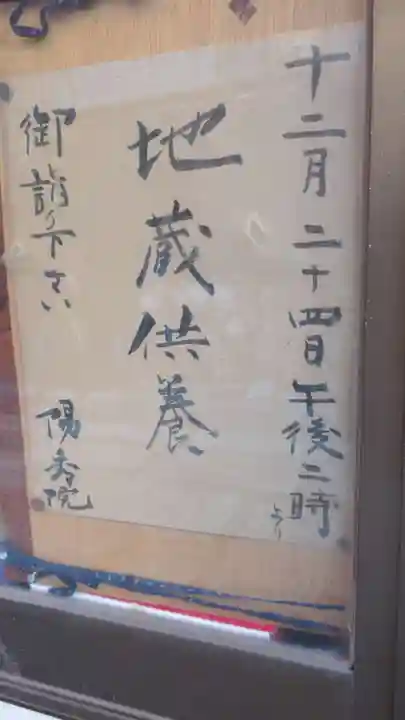 十二月二十四日午後二時より
地蔵供養
御詣り下さい
陽秀院